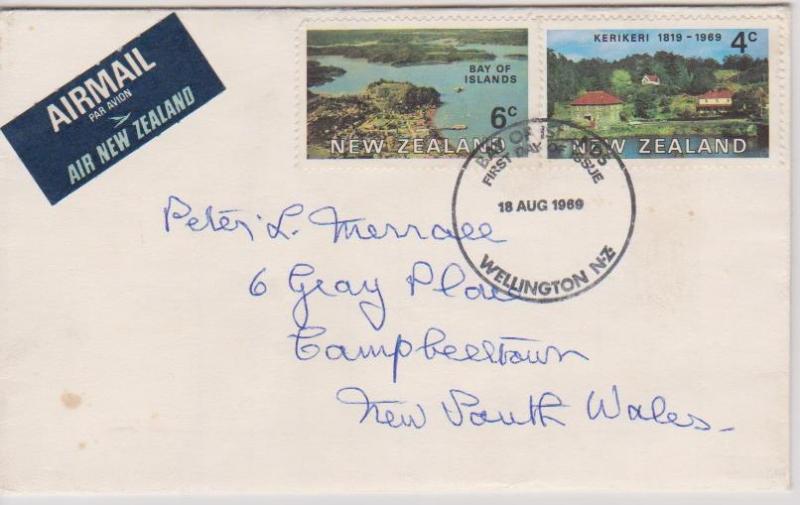 AIRMAIL
PAR AVION
AIR NEW ZEALAND
BAY OF
ISLANDS
6c
NEW ZEALAND
KERIKERI 1819-1969
4c
NEW ZEALAND
BAY OF
FIRST DAY OF ISSUE
18 AUG 1969
WELLINGTON N.Z.
Peter L.
6 Gray Place
Campbelltown
New South Wales.